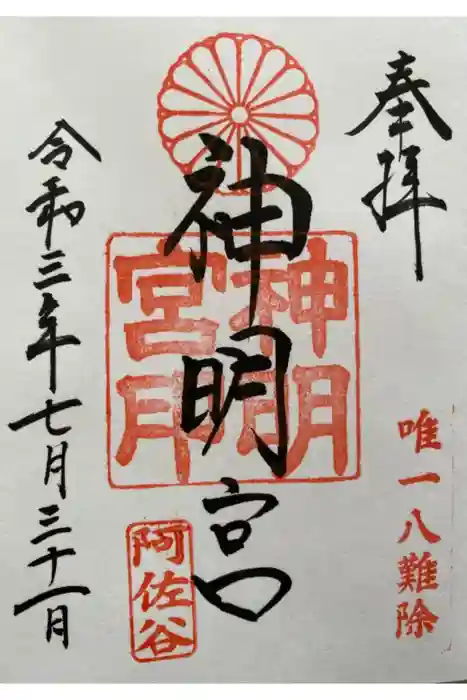 奉拝
唯一八難除
神明宮
神明
宮印
阿佐谷
令和三年七月三十一日